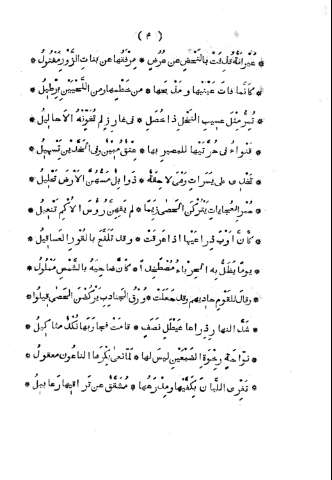 (٥)
عيرانة قذفت بالنحض عن عرض * مرفقها عن بنات الزور مفتول *
كأنما فات عينيها ومذبحها * من خطمها ومن اللحيين برطيل *
تمر مثل عسيب النخل ذا خصل * فى غارز لم تخونه الأحاليل *
قنواء فى حرتيها للبصير بها * عتق مبين وفى الخدين تسهيل *
تخدى على يسرات وهى لاحقة * ذوابل مسهن الأرض تحليل *
سمر العجايات يتركن الحصى زيما * لم يقهن رؤس الأكم تنعيل *
كأن أوب ذراعيها اذا عرقت * وقد تلفع بالقور العساقيل *
يوما يظل به الحرباء مصطخدا * كأن ضاحيه بالشمس مملول *
وقال للقوم حاديهم وقد جعلت * ورق الجنادب يركضن الحصى قيلوا *
شد النهار ذراعا عيطل نصف * قامت فجاوبها نكد مثاكيل *
نواحة رخوة الضبعين ليس لها * لما نعى بكرها الناعون معقول *
تفرى اللبان بكفيها ومدرعها * مشقق عن تراقيها رعابيل *